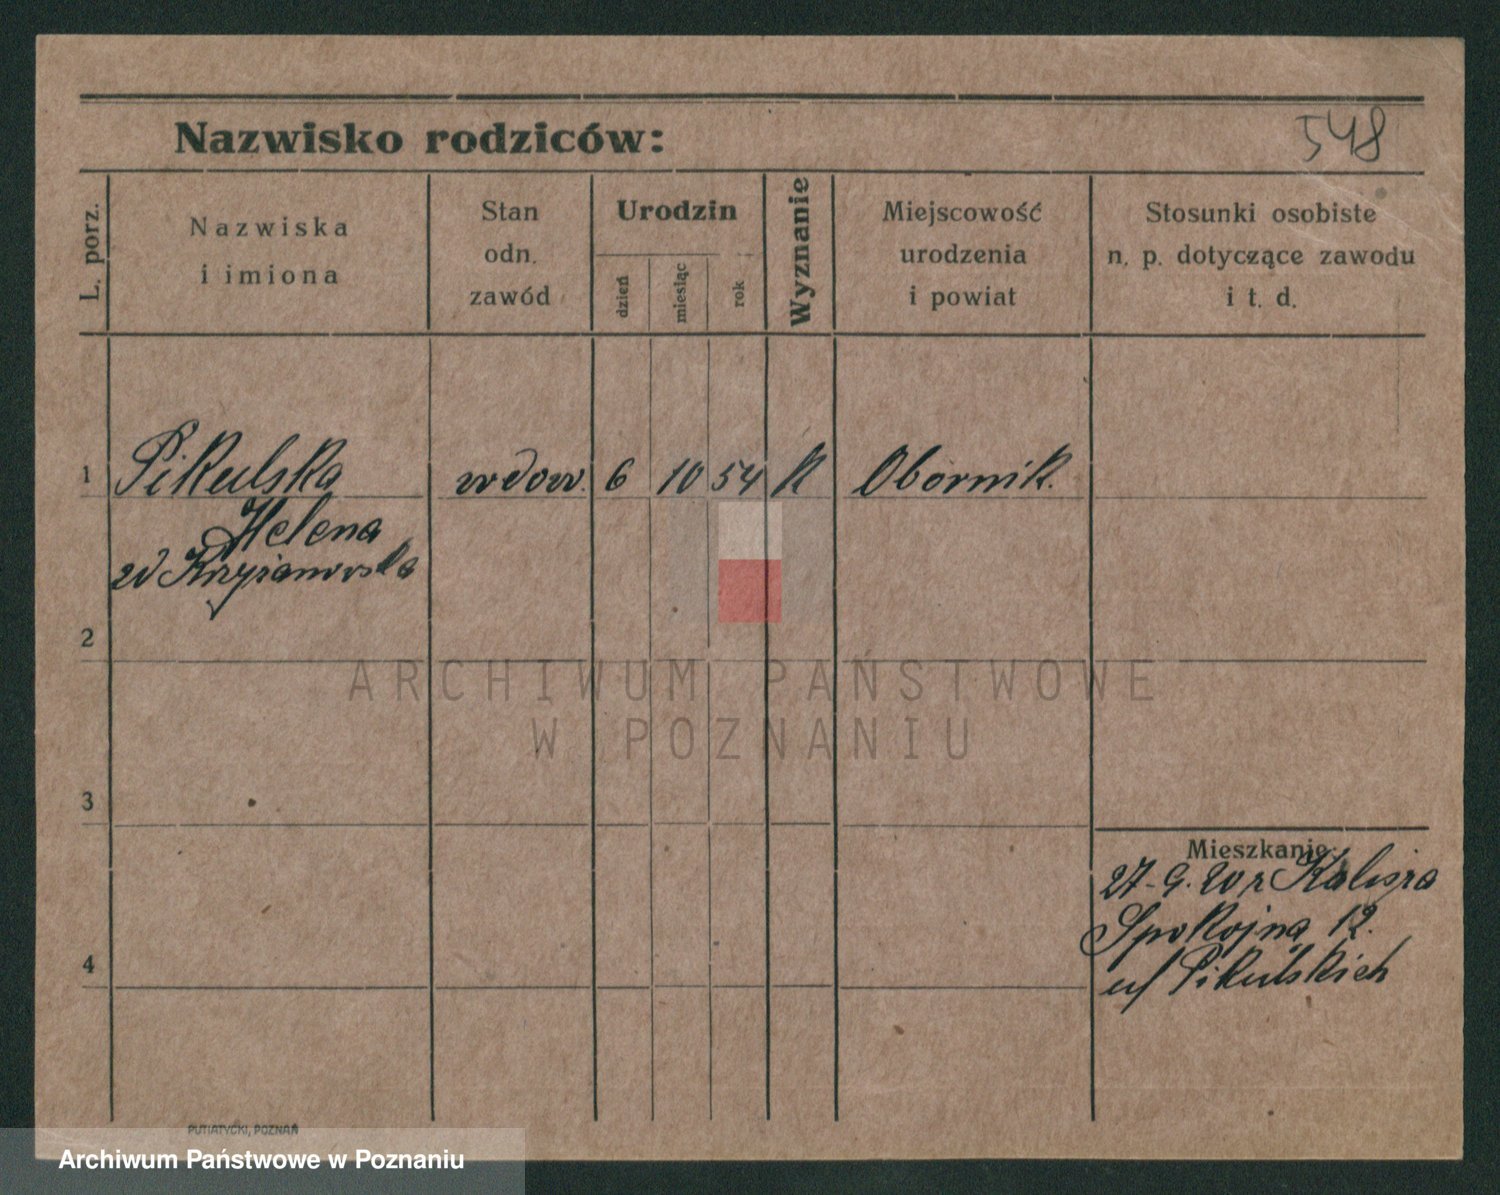 Nazwisko rodziców:
548
L. porz.
Nazwiska
i imiona
Stan
odn.
zawód
Urodzin
dzień
miesiąc
rok
Wyznanie
Miejscowość
urodzenia
i powiat
Stosunki osobiste
n. p. dotyczące zawodu
i t. d.
1 Pikulska wdow. 6 10 54 k Obornik.
Helena
zd Krzyżanowska
2
ARCHIWUM PAŃSTWOWE
W POZNANIU
3
Mieszkanie:
27-9.20 z Kalisza
Spokojna 12.
u/ Pikulskich
4
PUTIATYCKI, POZNAŃ
Archiwum Państwowe w Poznaniu